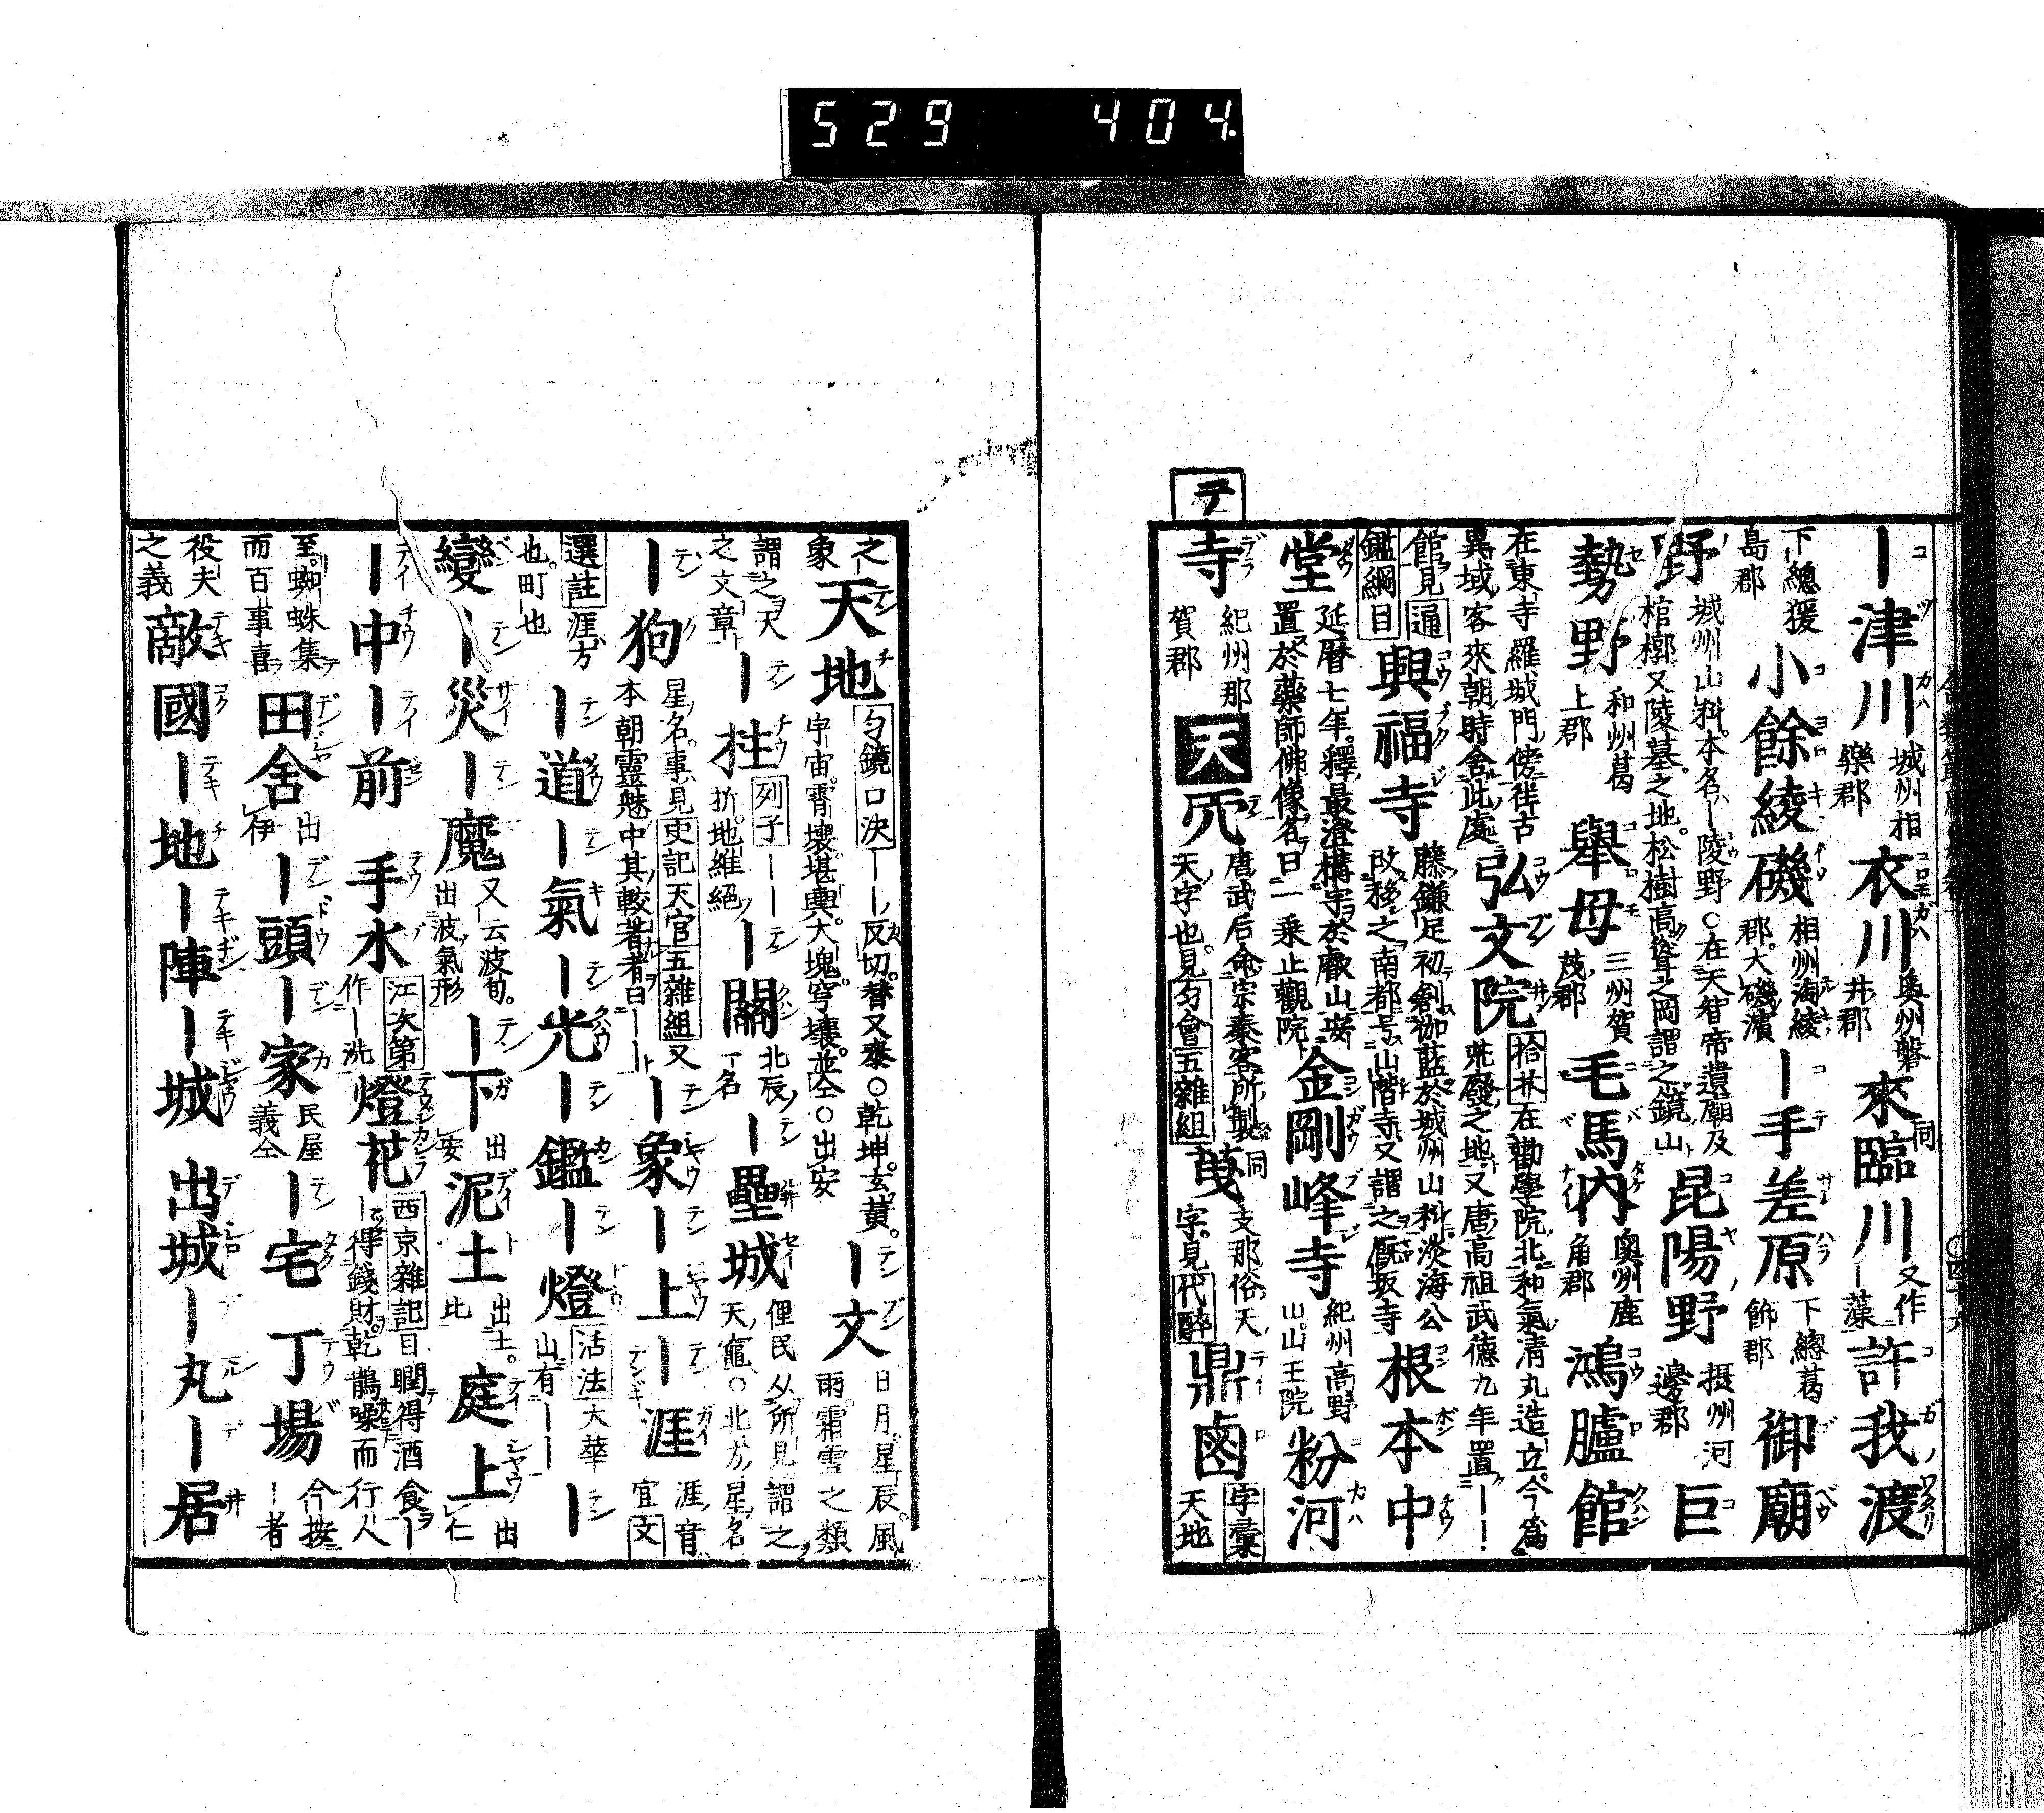 529 404.
｜津川 城州相樂郡 衣川 奥州磐井郡 來臨川 同 又作｜藻 許我渡
下總猨島郡 小餘綾磯 相州淘綾郡大磯濱 ｜手差原 下總葛飾郡 御廟
野 城州山科本名｜陵野○在天智帝遺廟及棺槨又陵墓之地松樹高聳之岡謂之鏡山 昆陽野 摂州河邊郡 巨
勢野 和州葛上郡 擧母 三州賀茂郡 毛馬内 奥州鹿角郡 鴻臚館
在東寺羅城門傍徃古異域客來朝時舎此處 弘文院 拾芥 在勸學院北和氣清丸造立今爲荒廢之地又唐高祖武德九年置｜｜
館見通鑑綱目 興福寺 藤鎌足初創伽藍於城州山科淡海公改移之南都号山階寺又謂之厩坂寺 根本中
堂 延暦七年釋最澄構宇於叡山安置於藥師佛像名曰一乗止觀院 金剛峰寺 紀州高野山山王院 粉河
テ
寺 紀州那賀郡 天 兲 唐武后命宗秦客所製天字也見匀會五雜組 同 支那俗天字見代醉 鼎鹵 字彙 天地
之｜象 天地 匀鏡口決 ｜｜反切替又泰○乾坤玄黄宇宙霄壤堪輿大塊穹壤並仝○出安 ｜文 日月星辰風雨霜雪之類
謂之天之文章 ｜柱 列子 ｜｜折地維絕 ｜關 北辰ノ一名 ｜壘城 俚民夕所見謂之天竈○北方星名
｜狗 星名事見史記天官五雜組又本朝靈魅中其較著者曰｜｜ ｜象｜上｜涯 涯音宜文
選註 涯方也町也 ｜道｜氣｜光｜鑑｜燈 活法 大華山有｜｜ ｜
變｜災｜魔 又云波旬出波氣形 ｜下 出安 泥土 出土比 庭上 出仁
｜中｜前 手水 江次第 作｜洗 燈花 西京雜記 目瞤得酒食｜｜得錢財乾鵲噪而行人
至蜘蛛集而百事喜 田舍 出伊 ｜頭｜家 民屋義仝 ｜宅 丁場 今按｜者
役夫之義 敵國｜地｜陣｜城 出城｜丸｜居